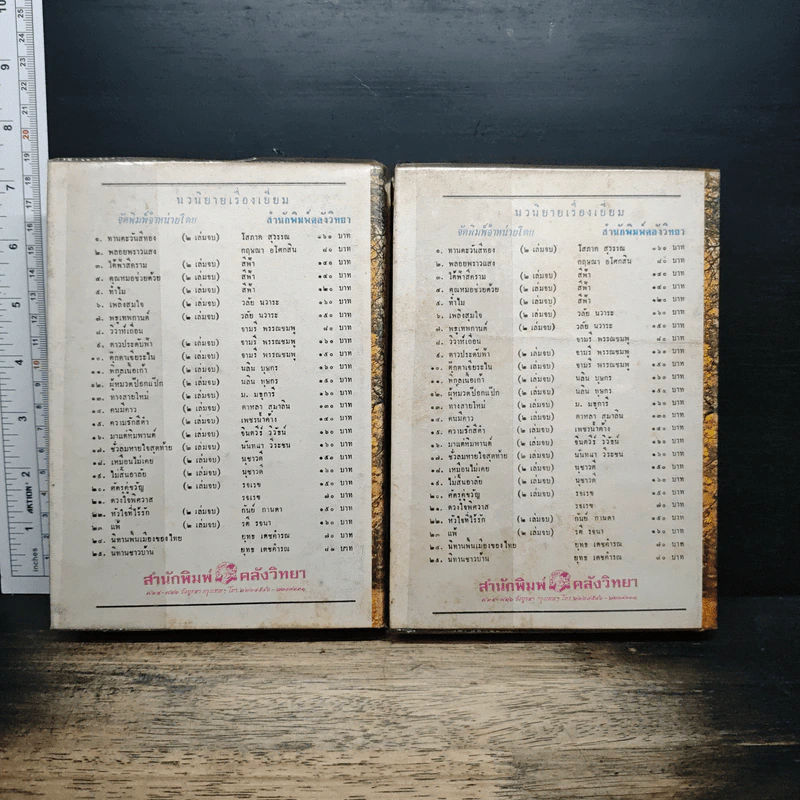 นวนิยายเรื่องเยี่ยม
จัดพิมพ์จำหน่ายโดย สำนักพิมพ์คลังวิทยา
๑. ทานตะวันสีทอง (๒ เล่มจบ) โสภาค สุวรรณ ๑๖๑ บาท
๒. พลอยพราวแสง กฤษณา อโศกสิน ๘๐ บาท
๓. ใต้ฟ้าสีคราม (๒ เล่มจบ) สีฟ้า บาท
๔. คุณหมอช่วยด้วย (๒ เล่มจบ) สีฟ้า บาท
๕. ทำไม (๒ เล่มจบ) สีฟ้า ๑๒๐ บาท
๖. เพลิงสุมใจ (๒ เล่มจบ) วลัย นวาระ ๑๖๐ บาท
๗. (๒ เล่มจบ) วลัย นวาระ ๑๕๐ บาท
๘. จามรี พรรณชมพู ๘๐ บาท
๙. ดาวประดับฟ้า (๒ เล่มจบ) จามรี พรรณชมพู ๑๖๐ บาท
๑๐. (๒ เล่มจบ) จามรี พรรณชมพู ๑๕๐ บาท
๑๑. (๒ เล่มจบ) นลิน บุษกร ๑๖๐ บาท
๑๒. ผู้หมวดป๊อกแป๊ก (๒ เล่มจบ) นลิน บุษกร ๑๕๐ บาท
๑๓. ทางสายใหม่ (๒ เล่มจบ) ม. มธุการี ๑๖๐ บาท
๑๔. คนมีคาว (๒ เล่มจบ) ดาหลา สุมาลิน ๑๓๐ บาท
๑๕. ความรักสีดำ (๒ เล่มจบ) เพชรน้ำค้าง ๑๕๐ บาท
๑๖. มาแต่หิมพานต์ (๒ เล่มจบ) จินตวีร์ วิวัธน์ ๑๖๐ บาท
๑๗. ชั่วลมหายใจสุดท้าย (๒ เล่มจบ) นันทนา วีระชน ๑๖๐ บาท
๑๘. เหมือนไม่เคย (๒ เล่มจบ) นุชาวดี ๑๕๐ บาท
๑๙. ไม่สิ้นอาลัย (๒ เล่มจบ) นุชาวดี ๑๖๐ บาท
๒๐. ศัตรูคู่ขวัญ (๒ เล่มจบ) รจเรข ๑๕๐ บาท
๒๑. ดวงใจพิศวาส รจเรข ๗๐ บาท
๒๒. หัวใจที่ไร้รัก (๒ เล่มจบ) กันย์ กานดา ๑๕๐ บาท
๒๓ แพ้ (๒ เล่มจบ) รติ รจนา ๑๖๐ บาท
๒๔. นิทานพื้นเมืองของไทย ยุทธ เดชคำรณ ๗๐ บาท
๒๕. นิทานชาวบ้าน ยุทธ เดชคำรณ ๘๐ บาท
สำนักพิมพ์ คลังวิทยา
นวนิยายเรื่องเยี่ยม
จัดพิมพ์จำหน่ายโดย สำนักพิมพ์คลังวิทยา
๑. ทานตะวันสีทอง (๒ เล่มจบ) โสภาค สุวรรณ ๑๖๑ บาท
๒. พลอยพราวแสง กฤษณา อโศกสิน ๘๐ บาท
๓. ใต้ฟ้าสีคราม (๒ เล่มจบ) สีฟ้า บาท
๔. คุณหมอช่วยด้วย (๒ เล่มจบ) สีฟ้า บาท
๕. ทำไม (๒ เล่มจบ) สีฟ้า ๑๒๐ บาท
๖. เพลิงสุมใจ (๒ เล่มจบ) วลัย นวาระ ๑๖๐ บาท
๗. (๒ เล่มจบ) วลัย นวาระ ๑๕๐ บาท
๘. จามรี พรรณชมพู ๘๐ บาท
๙. ดาวประดับฟ้า (๒ เล่มจบ) จามรี พรรณชมพู ๑๖๐ บาท
๑๐. (๒ เล่มจบ) จามรี พรรณชมพู ๑๕๐ บาท
๑๑. (๒ เล่มจบ) นลิน บุษกร ๑๖๐ บาท
๑๒. ผู้หมวดป๊อกแป๊ก (๒ เล่มจบ) นลิน บุษกร ๑๕๐ บาท
๑๓. ทางสายใหม่ (๒ เล่มจบ) ม. มธุการี ๑๖๐ บาท
๑๔. คนมีคาว (๒ เล่มจบ) ดาหลา สุมาลิน ๑๓๐ บาท
๑๕. ความรักสีดำ (๒ เล่มจบ) เพชรน้ำค้าง ๑๕๐ บาท
๑๖. มาแต่หิมพานต์ (๒ เล่มจบ) จินตวีร์ วิวัธน์ ๑๖๐ บาท
๑๗. ชั่วลมหายใจสุดท้าย (๒ เล่มจบ) นันทนา วีระชน ๑๖๐ บาท
๑๘. เหมือนไม่เคย (๒ เล่มจบ) นุชาวดี ๑๕๐ บาท
๑๙. ไม่สิ้นอาลัย (๒ เล่มจบ) นุชาวดี ๑๖๐ บาท
๒๐. ศัตรูคู่ขวัญ (๒ เล่มจบ) รจเรข ๑๕๐ บาท
๒๑. ดวงใจพิศวาส รจเรข ๗๐ บาท
๒๒. หัวใจที่ไร้รัก (๒ เล่มจบ) กันย์ กานดา ๑๕๐ บาท
๒๓ แพ้ (๒ เล่มจบ) รติ รจนา ๑๖๐ บาท
๒๔. นิทานพื้นเมืองของไทย ยุทธ เดชคำรณ ๗๐ บาท
๒๕. นิทานชาวบ้าน ยุทธ เดชคำรณ ๘๐ บาท
สำนักพิมพ์ คลังวิทยา